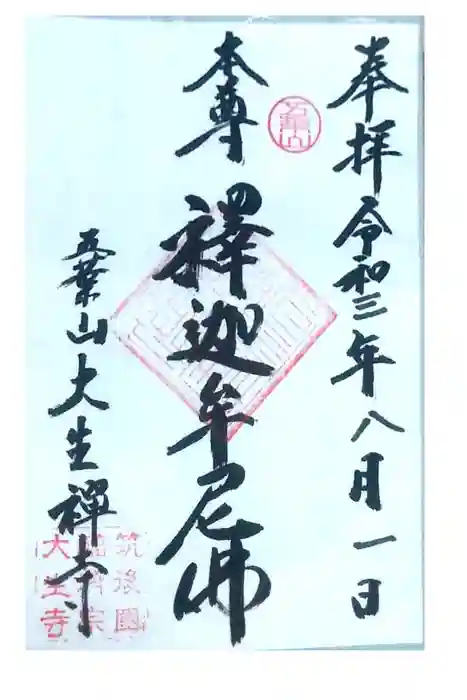 奉拝令和三年八月一日
本尊
釋迦牟尼佛
五葉山大生禅寺
五葉山
筑後國
臨済宗
大生寺